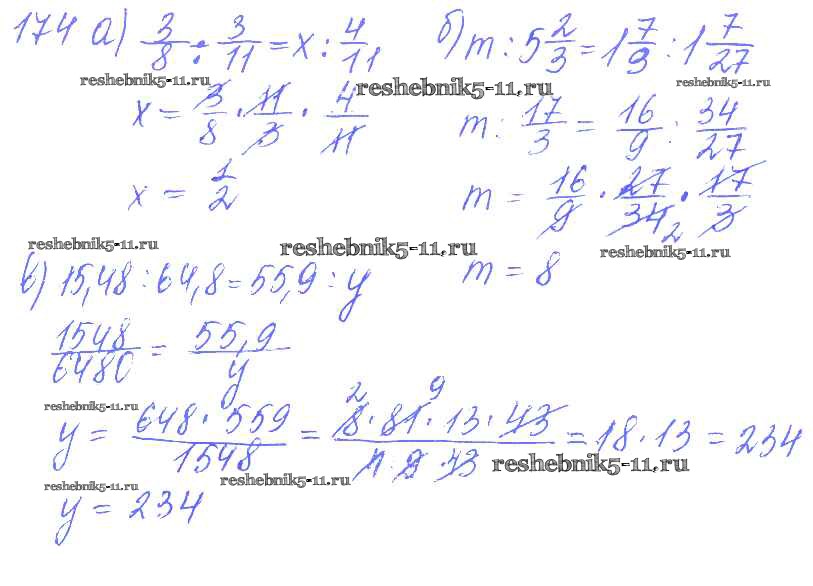 174 а) 3/8 : 3/11 = x : 4/11
б) m : 5 2/3 = 1 7/9 : 1 7/27
reshebnik5-11.ru
reshebnik5-11.ru
reshebnik5-11.ru
x = 3/8 · 11/3 · 4/11
m : 17/3 = 16/9 : 34/27
x = 1/2
m = 16/9 · 27/34 2 · 17/3
reshebnik5-11.ru
reshebnik5-11.ru
reshebnik5-11.ru
в) 15,48 : 64,8 = 55,9 : y
m = 8
1548/6480 = 55,9/y
reshebnik5-11.ru
y = 648 · 559/1548 = 2 9 8 · 81 · 13 · 43/4 · 9 · 43 = 18 · 13 = 234
reshebnik5-11.ru
reshebnik5-11.ru
reshebnik5-11.ru
y = 234